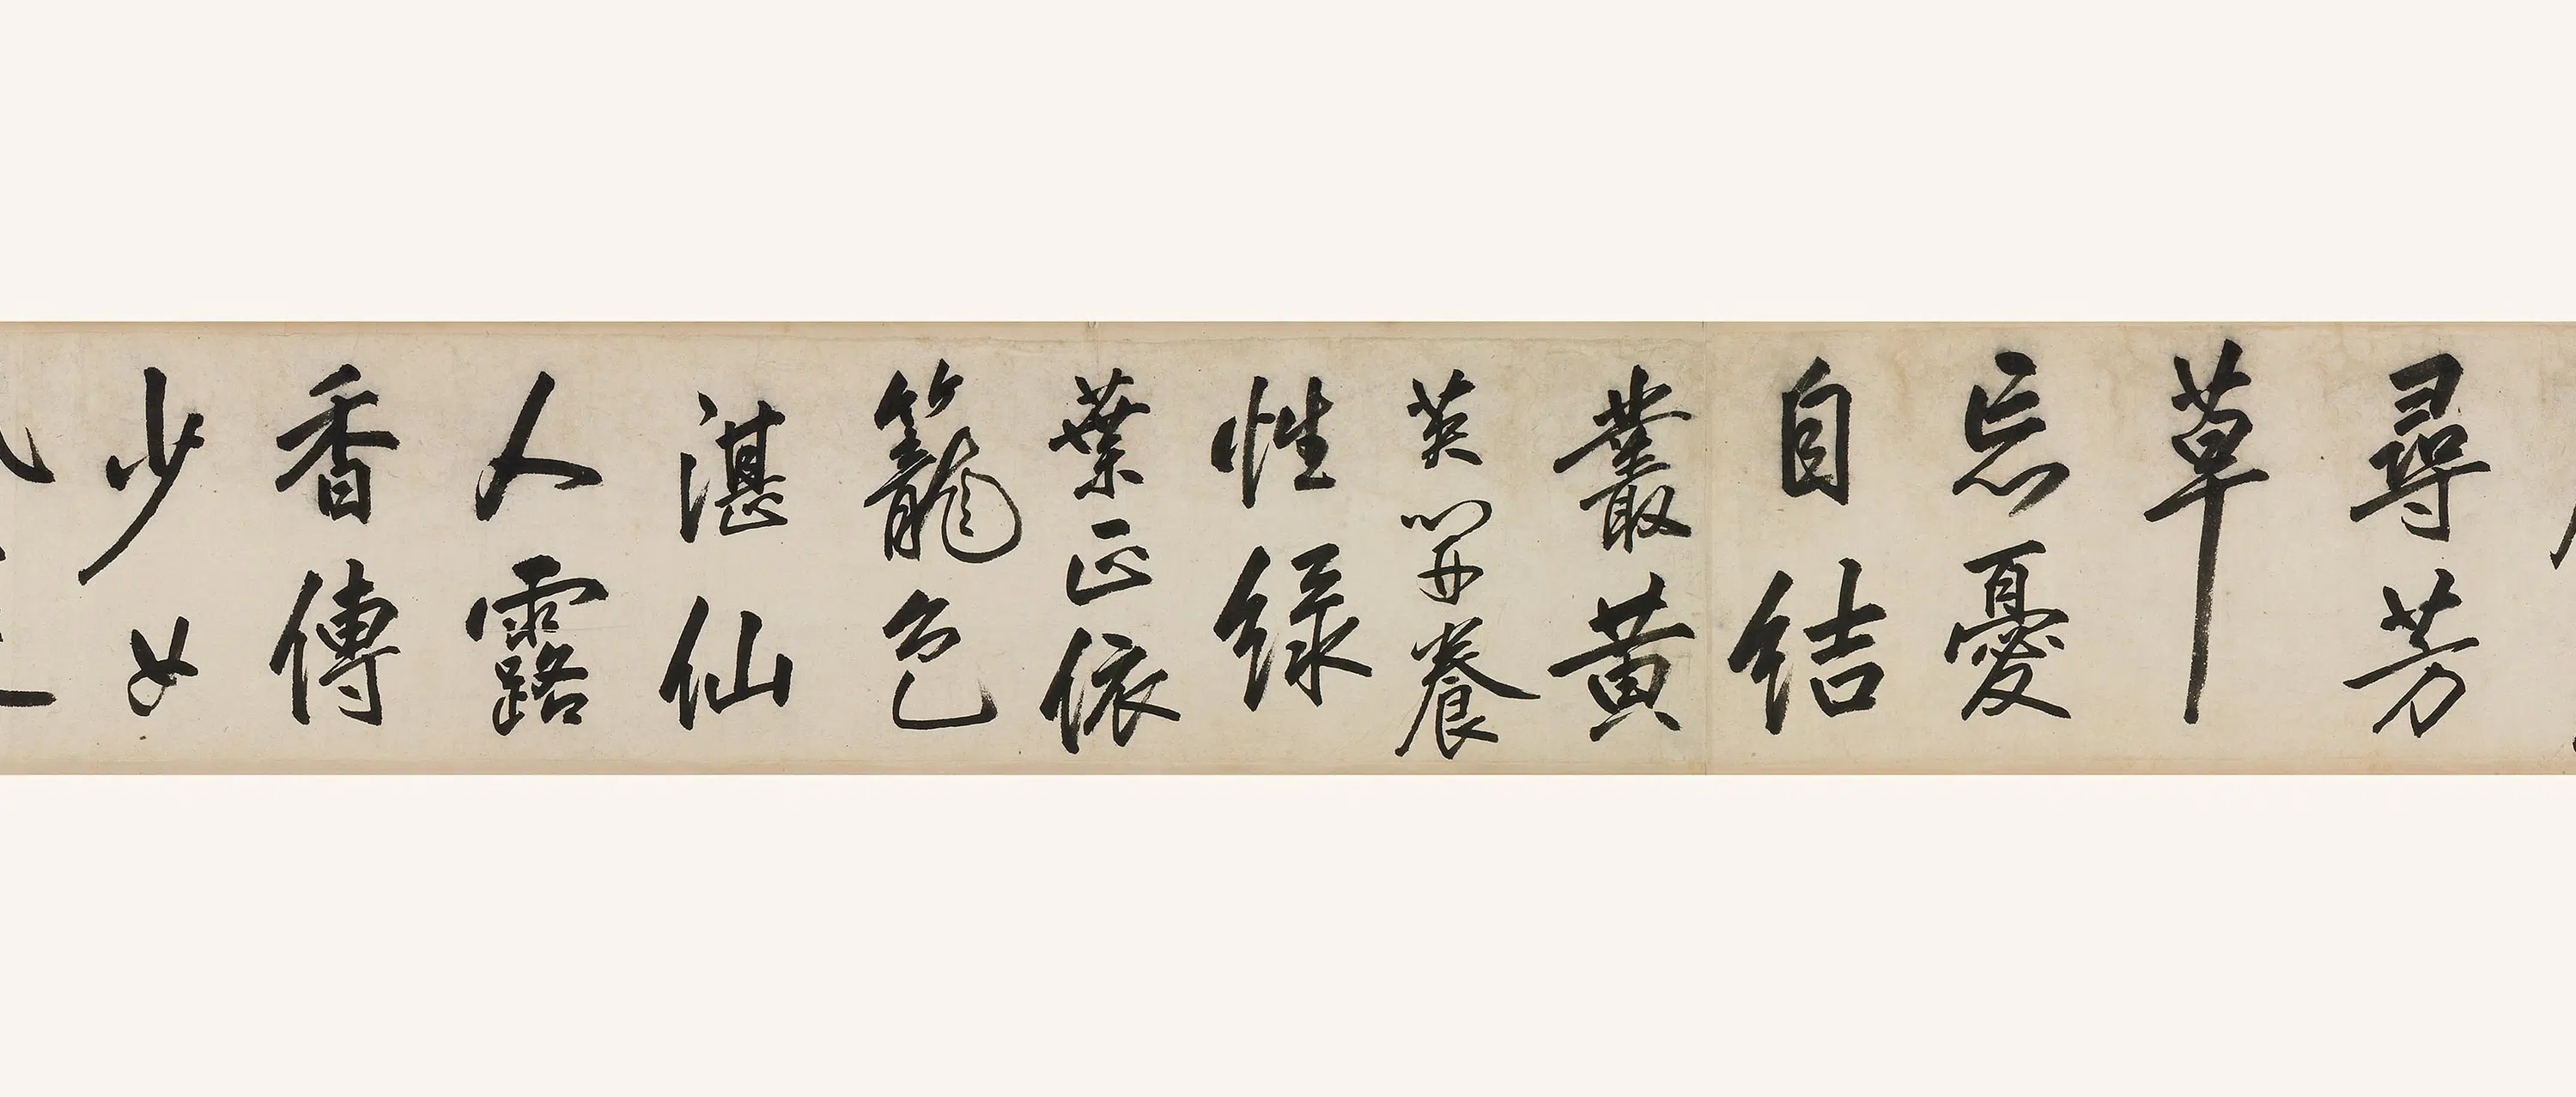 尋芳
草
忘憂
自結
叢黄
英開養
性緑
葉正依
籠色
湛仙
人露
香傳
少女